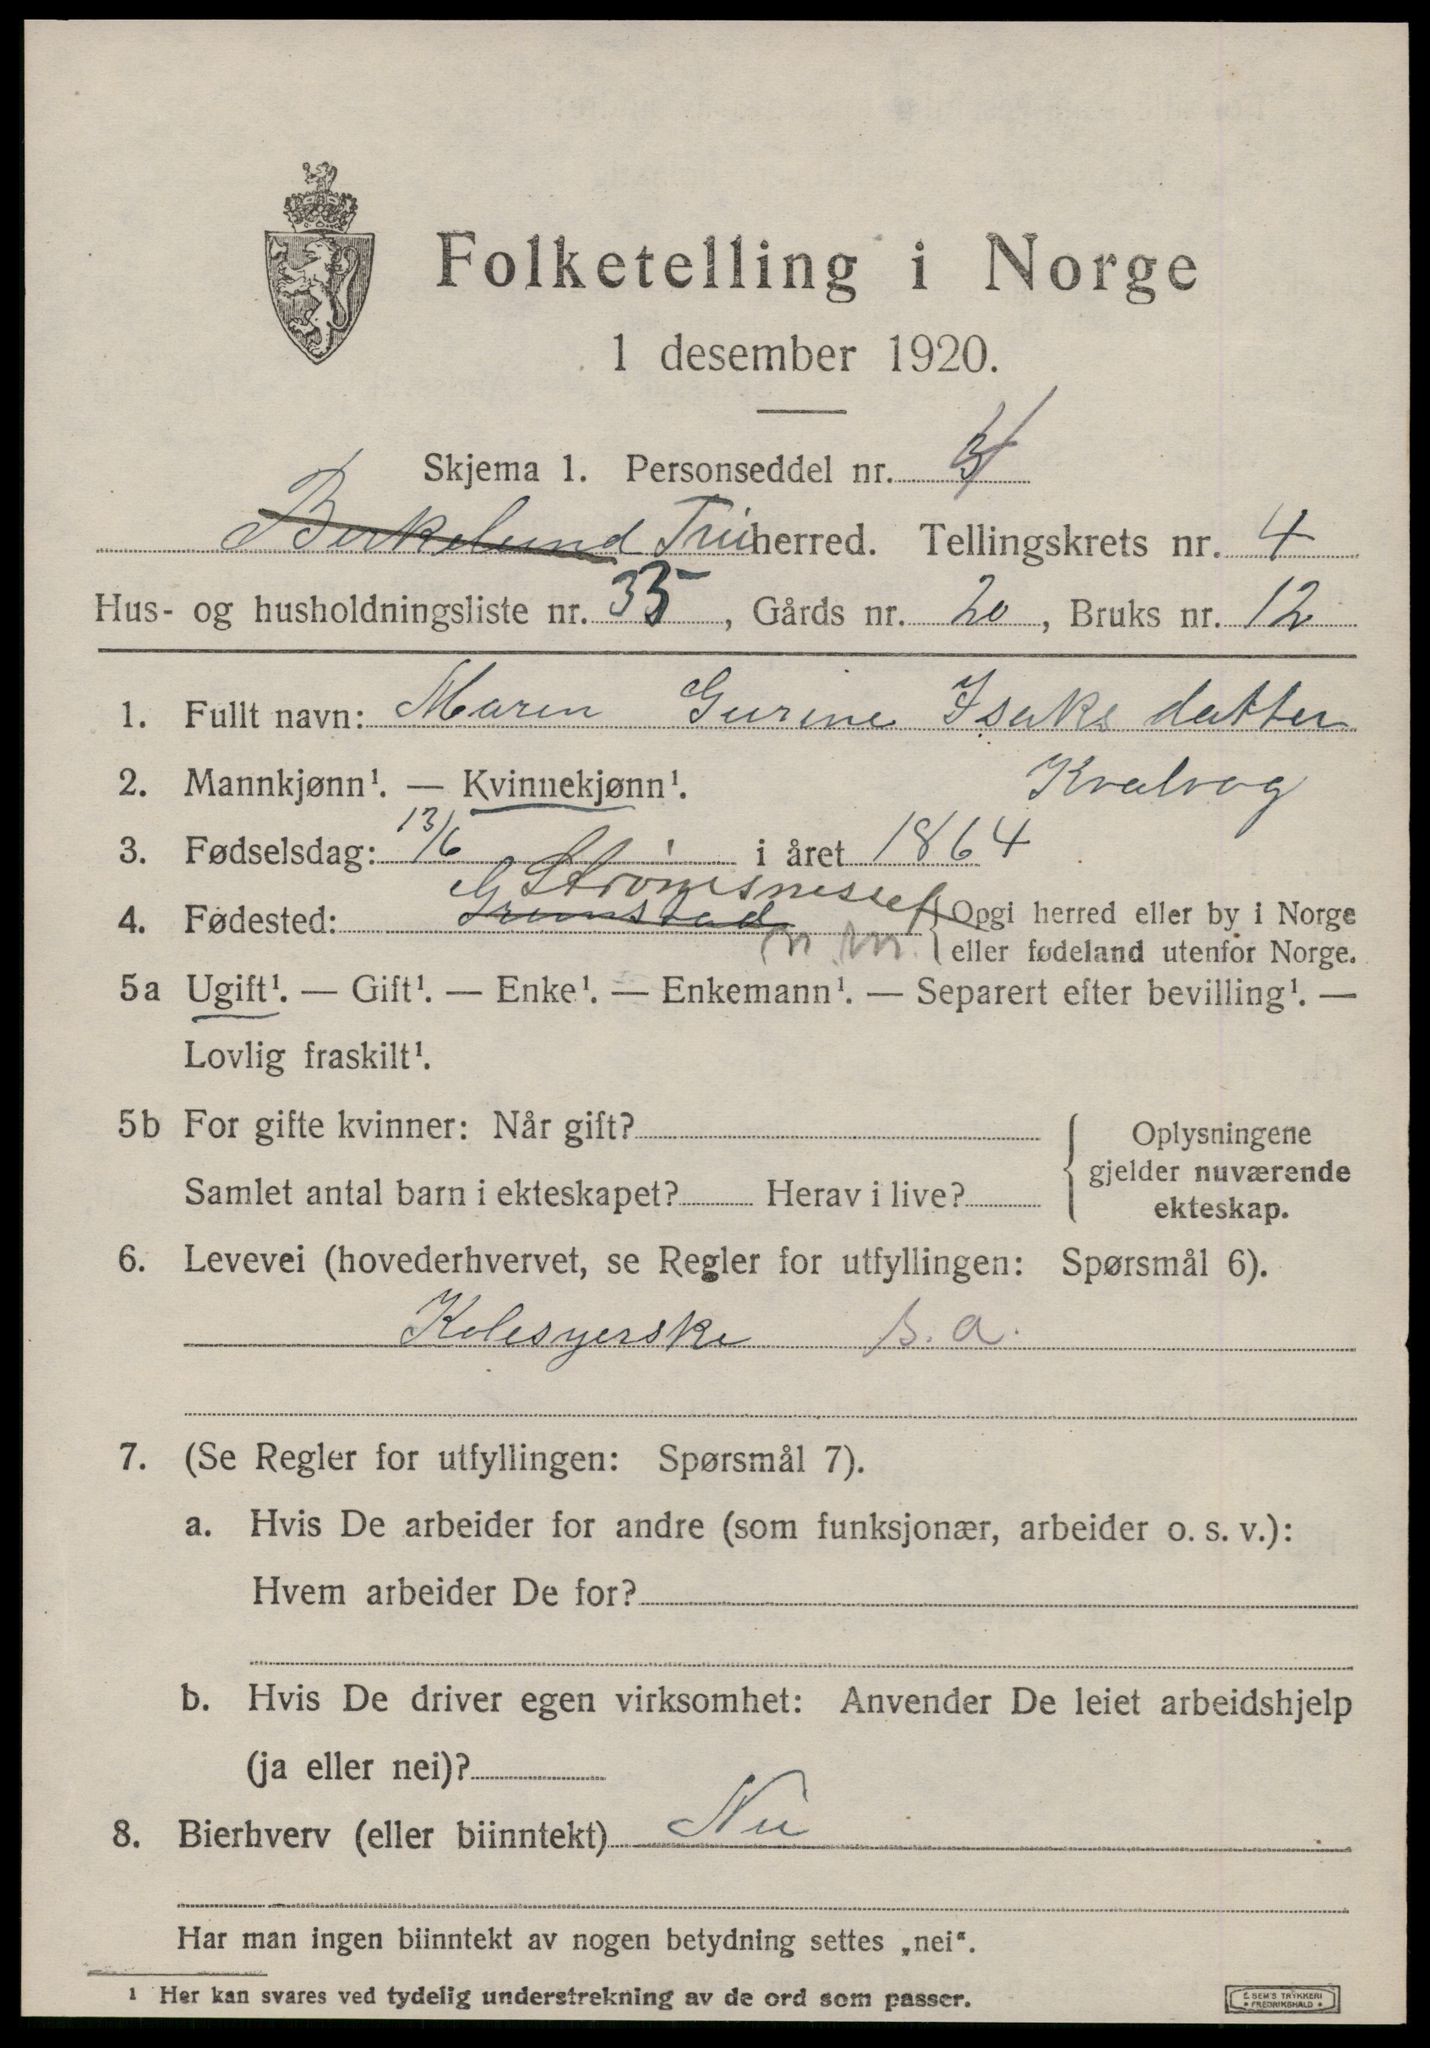 Folketelling i Norge
1 desember 1920.
Skjema 1. Personseddel nr. 3
Birkelund herred. Tellingskrets nr. 4
Hus- og husholdningsliste nr. 35, Gårds nr. 20, Bruks nr. 12
1. Fullt navn: Maren Gurine Isaks datter
2. Mannkjønn¹. — Kvinnekjønn¹. Kvalvog
3. Fødselsdag: 13/6 i året 1864
Strømsneset
4. Fødested: Grunstad { Opgi herred eller by i Norge
eller fødeland utenfor Norge.
5a Ugift¹. — Gift¹. — Enke¹. — Enkemann¹. — Separert efter bevilling¹. —
Lovlig fraskilt¹.
5b For gifte kvinner: Når gift?
Samlet antal barn i ekteskapet? Herav i live?
Oplysningene
gjelder nuværende
ekteskap.
6. Levevei (hovederhvervet, se Regler for utfyllingen: Spørsmål 6).
Kolesyerske s. a.
7. (Se Regler for utfyllingen: Spørsmål 7).
a. Hvis De arbeider for andre (som funksjonær, arbeider o. s. v.):
Hvem arbeider De for?
b. Hvis De driver egen virksomhet: Anvender De leiet arbeidshjelp
(ja eller nei)?
8. Bierhverv (eller biinntekt) Nei
Har man ingen biinntekt av nogen betydning settes „nei“.
¹ Her kan svares ved tydelig understrekning av de ord som passer.
E. SEM'S TRYKKERI
* FREDRIKSHALD *